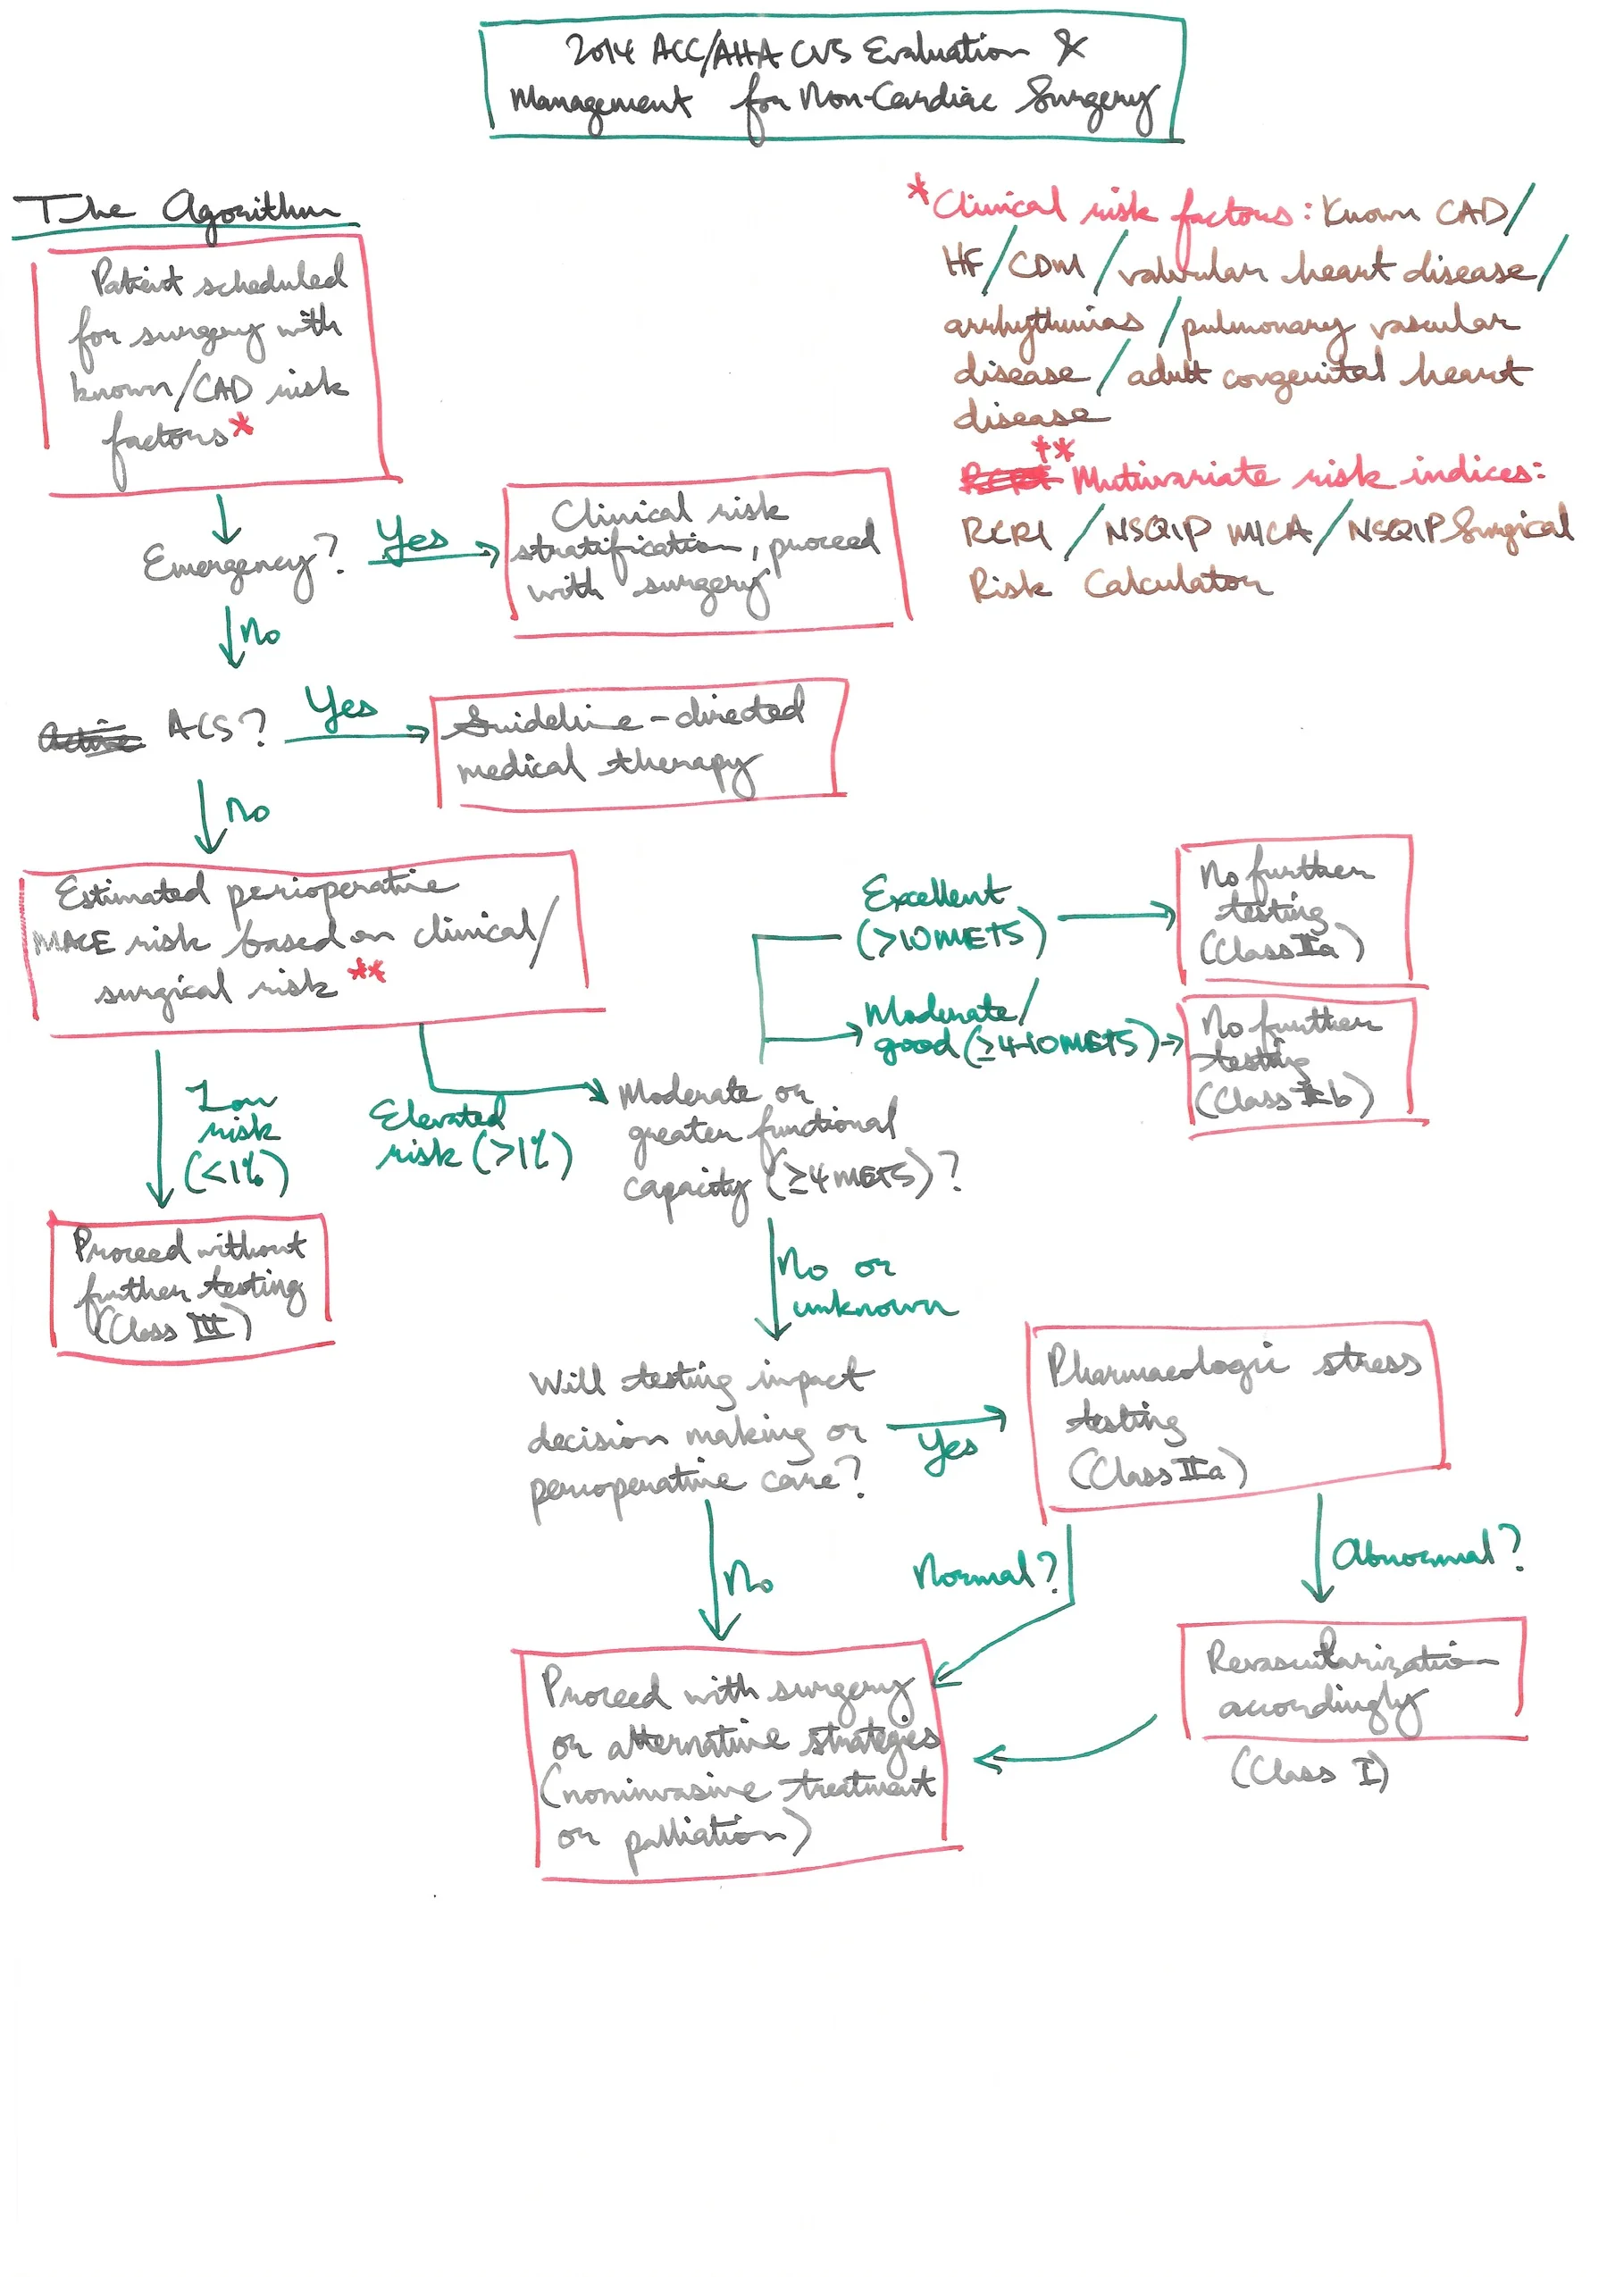 2014 ACC/AHA CVS Evaluation &
Management for Non-Cardiac Surgery
The Agorithm
Patient scheduled
for surgery with
known/CAD risk
factors*
*Clinical risk factors: Known CAD/
HF/CDM/valvular heart disease/
arrhythmias/pulmonary vascular
disease/adult congenital heart
disease
** Mutivariate risk indices:
RCRI/NSQIP MICA/NSQIP Surgical
Risk Calculator
Emergency?
Yes
Clinical risk
stratification, proceed
with surgery
No
ACS?
Yes
Guideline-directed
medical therapy
No
Estimated perioperative
MACE risk based on clinical/
surgical risk **
Low
risk
(<1%)
Proceed without
further testing
(Class III)
Elevated
risk (>1%)
Moderate or
greater functional
capacity (≥4METS)?
Excellent
(>10METS)
No further
testing
(Class IIa)
Moderate/
good (≥4-10METS)
No further
testing
(Class IIb)
No or
unknown
Will testing impact
decision making or
perioperative care?
Yes
Pharmacologic stress
testing
(Class IIa)
No
Normal?
Abnormal?
Revascularization
accordingly
(Class I)
Proceed with surgery
or alternative strategies
(noninvasive treatment
or palliation)